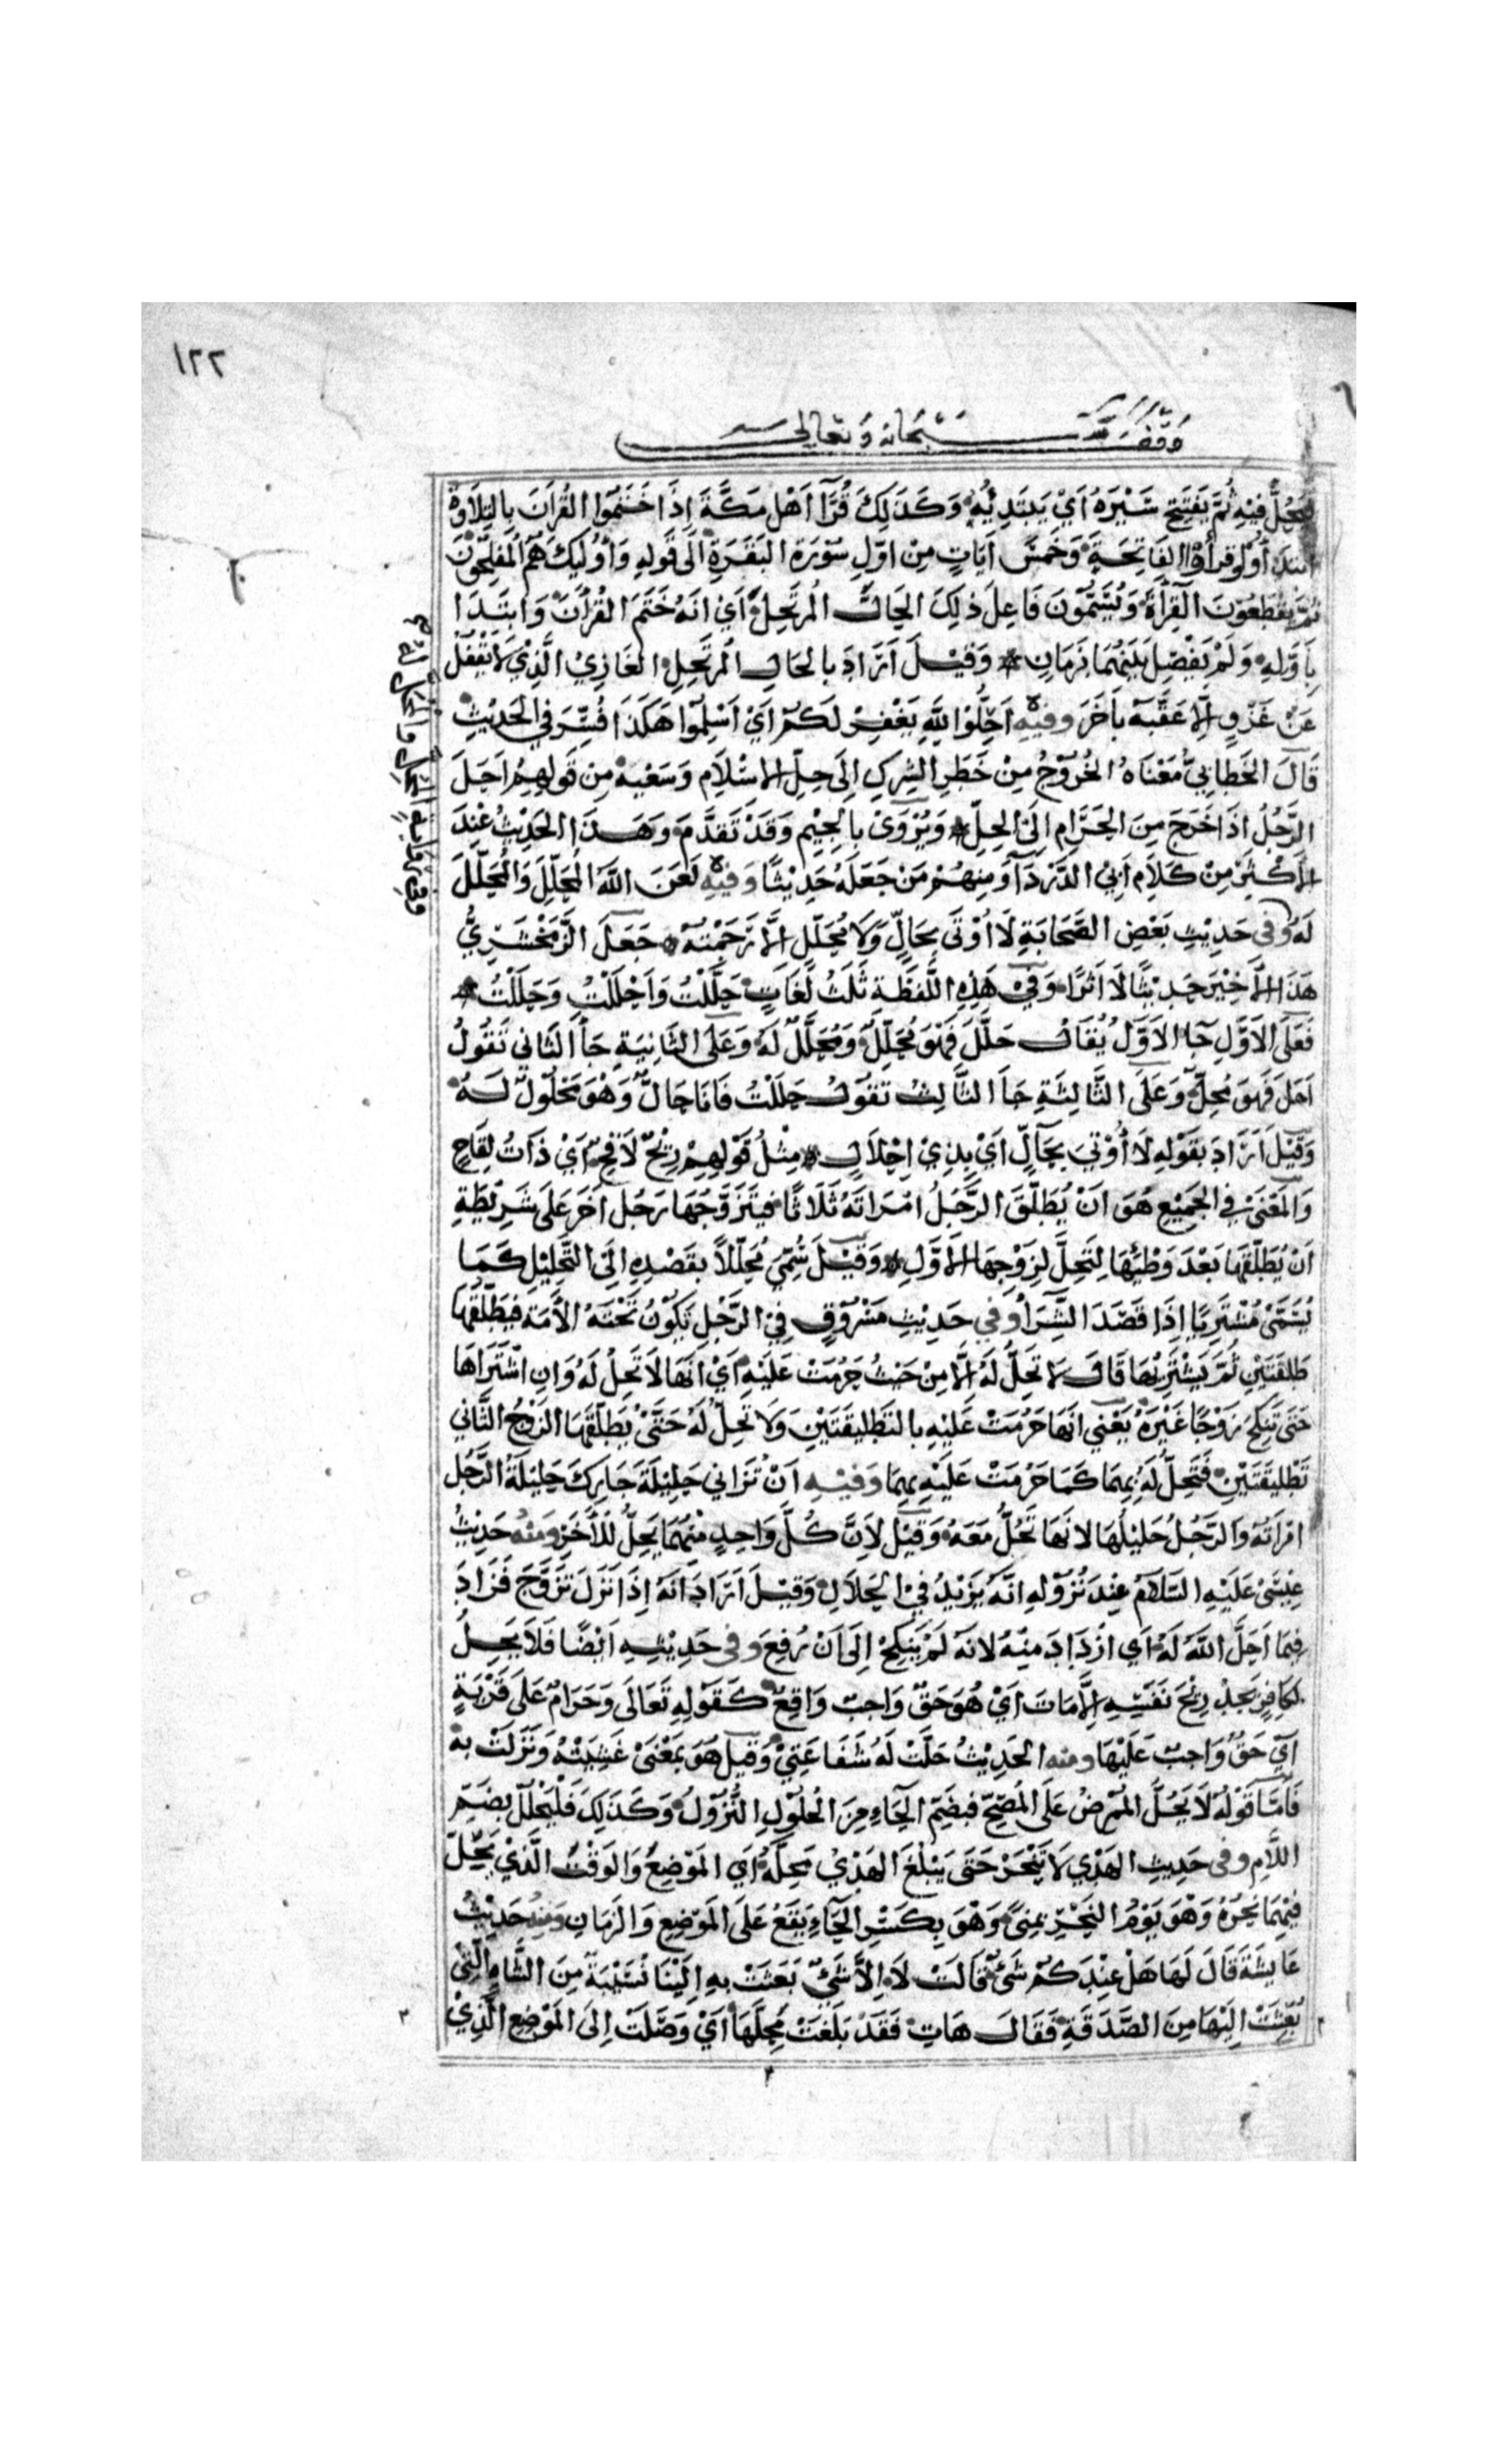 ١٢٢
وقف لله سبحانه وتعالى
فيحُلُّ فيه ثُمَّ يَفتَتِح سَيْرَهُ اَيْ يَبتَدِيُه وَكَذَلِكَ قُرَّآ اَهْل مَكَّةَ اِذَا خَتَمُوا القُرآنَ بِالتِلاَوَة
ابتدأوا وقرأوا الفَاتِحَةَ وَخَمسَ اَيَاتٍ مِنْ اوّلِ سُوْرَة البَقَرَةِ الَى قَولِهِ وَأُولَيِكَ هُمُ المُفلِحُونَ
ثُمَّ يقْطَعُوْنَ القِرْأَةَ وَيُسَمُّوْنَ فَاعِلَ ذلِكَ الحَالَّ المُرتَحِلَ اَيْ انَهُ خَتَمَ القُرْآنَ وَابتَدَا
بِاَوَّلِهِ وَلَمْ يَفْصِل بَيْنَهُمَا بِزَمَانٍ * وَقِيْلَ اَرَادَ بالحَالِ المُرتَحِلِ الغَازِيْ الَّذِيْ لاَ يَقْفُلُ
عَنْ غَزْوٍ اِلَّا عَقَّبَه بآخَرَ وفيه اَحِلُّوْا لِلَّهِ يَغْفِرْ لَكُمْ اَيْ اَسْلِمُوا هَكَذَا فُسِّرَ فِي الحَدِيْثِ
قَالَ الخَطابِيُّ مَعْنَاهُ الخُرُوْجُ مِنْ حَظَرِ الشِركِ اِلَى حِلِّ الاِسْلاَمِ وَسَعَتِه مِن قَولِهِمْ اَحَلَ
الرَّجُلُ اذَا خَرَجَ مِنَ الحَرَامِ اِلَى الحِلِّ * وَيُرْوَىْ بالجِيْمِ وَقَدْ تَقدَّمَ وَهَذَا الحَدِيْثُ عِنْدَ
الأَكْثَرِ مِنْ كَلاَمِ اَبِي الدَّرْدَآ وَمِنهُمْ مَنْ جَعَلَهُ حَدِيْثًا وَفيهِ لَعَنَ اللَّهُ المُحَلِّلَ وَالمُحَلَّلَ
لَهُ وفى حَدِيْثِ بَعْضِ الصَّحَابَةِ لَا اُوْتَى بِحَالٍّ وَلاَ مُحَلِّلٍ الَّا رَجَمْتُهُ * جَعَلَ الزَّمَخْشَرِيُّ
هَذَا الأَخِيْرَ حَدِيْثًا لَا اَثَرًا وَفِيْ هَذِهِ اللَّفظَة ثَلَثُ لُغَاتٍ حَلَّلْتُ وَاَحْلَلْتُ وَحَلَلْتُ *
فَعَلَى الاَوَّلِ جَا الاَوَّلُ يُقَالُ حَلَّلَ فَهُوَ مُحَلِّلٌ وَمُحَلَّلٌ لَهُ وَعَلَى الثَانِيَةِ جَأَ الثَّانِي تَقُولُ
اَحَلَ فَهوَ مُحِلٌّ وَعَلَى الثَّالِثَةِ جَأَ الثَّالِثُ تَقُوْلُ حَلَلْتُ فَانَا حَالٌّ وَهُوَ مَحْلُوْلٌ لَهُ
وَقِيْلَ اَرَادَ بَقَوْلِهِ لَا أُوْتَىَ بِحَآلٍّ اَيْ بِذِيْ اِحْلاَلٍ * مِثْلُ قَوْلِهِمْ رِيْحٌ لاَقِحٌ اَيْ ذَاتُ لِقَاحٍ
وَالمَعْنَىْ فِي الجَمِيْعِ هُوَ انْ يُطَلِّقَ الرَّجُلُ امْرَاتَهُ ثَلَاثًا فيَتَزَوَّجَهَا رَجُل آخَر عَلَى شَرِيْطَةِ
اَنْ يُطَلّقَهَا بَعْدَ وَطْئِهَا لِتَحِلَّ لِزَوْجِهَا الأَوَّلِ * وَقِيْلَ سُمِّيَ مُحَلّلاً بقَصْدِهِ اِلَى التَّحْلِيْلِ كَمَا
يُسَمَّىْ مُشْتَرِيًا اِذَا قَصَدَ الشِّرَأ وَفِي حَدِيْثِ مَسْرُوْقٍ فِي الرَّجُلِ تَكُوْنُ تَحْتَهُ الأَمَة فيطَلّقُهَا
طَلقَتَيْنِ ثُمَّ يَشْتَرِيْهَا قَالَ لاَ تَحِلُّ لَهُ الَّا مِنْ حَيْثُ حَرُمَتْ عَلَيْهِ اَيْ انَّهَا لَا تَحِلُ لَهُ وَانِ اشْتَرَاهَا
حَتَى تَنكِحَ زَوْجًا غَيْرَهُ يَعْنِي انَهَا حَرُمَتْ عَلَيْهِ بالتَطلِيقَتَيْنِ وَلاَ تَحِلُ لَهُ حَتَّىْ يُطَلّقَهَا الزَوْجُ الثَّانِي
تَطْلِيقَتَيْنِ فَتَحِلُّ لَهُ بِهِمَا كَمَا حَرُمَتْ عَلَيْهِ بِهِمَا وَفيْهِ اَنْ تُزَانِي حَلِيْلَةَ جَارِكَ حَلِيْلَةُ الرَّجُل
امْرَاتُهُ وَالرَّجُلُ حَلِيْلُهَا لانَهَا تَحُلُّ مَعَهُ وَقِيْل لِاَنَّ كُلَّ وَاحِدٍ مِنْهُمَا يَحِلُّ للآخَرِ وَمنْهُ حَدِيْثُ
عِيْسَىْ عَلَيْهِ السَّلَامُ عِنْدَ نُزُوْلِهِ انَّهُ يَزِيْدُ فِي الحَلاَلِ وَقِيْلَ اَرَادَ انَهُ اِذَا نَزَلَ تَزَوَّجَ فَزَادَ
فِيْمَا اَحَلَّ اللَّهُ لَهُ اَي ازْدَادَ مِنْهُ لانَهُ لَمْ يَنكِحْ اِلَى اَنْ رُفِعَ وفى حَدِيْثِهِ اَيْضًا فَلاَ يَحِلُ
لكافِرٍ يَجِدُ رِيْحَ نَفَسِهِ اِلَّا مَاتَ اَيْ هُوَ حَقٌ وَاجِبٌ وَاقِعٌ كَقَوْلِهِ تَعَالَى وَحَرَامٌ عَلَى قَرْيَةٍ
اَيْ حَقٌ وَاجِبٌ عَلَيْهَا ومنه الحَدِيْثُ حَلَّتْ لَهُ شَفَاعَتِيْ وَقِيلَ هُوَ بِمَعْنَىْ غَشِيَتْهُ وَنَزَلَتْ بِه
فَامَّا قَوْلُهُ لَا يَحُلَّ المُمْرِضُ عَلَى المُصِحِّ فبِضَمِّ الحَآءِ مِنَ الحُلُوْلِ النُّزُوْلِ وَكَذَلِكَ فَلْيَحْلُلْ بِضَمِّ
اللَّامِ وفى حَدِيثِ الهَدْيِ لاَ يُنْحَرْ حَتَى يَبْلُغَ الهَدْيُ مَحِلَّهُ اَيِ المَوْضِعُ وَالوَقْتُ الَّذِيْ يَحِلّ
فِيْهِمَا نَحْرُهُ وَهْوَ يَوْمُ النَحْرِ بِمِنىً وَهْوَ بِكَسْرِ الحَآءِ يَقَعُ عَلَى المَوْضِعِ وَالزَمَانِ وَمِنْهُ حَدِيْثُ
عَايِشَةَ قَالَ لَهَا هَلْ عِنْدَكُمْ شَيْءٌ قَالَتْ لَا اِلاَّ شَيْءٌ بَعَثَتْ بِهِ اِلَيْنَا نُسَيْبَةُ مِنَ الشَّاةِ الَّتِيْ
بُعِثَتْ الَيْهَا مِنَ الصَّدَقَةِ فَقَالَ هَاتِ فَقَدْ بَلَغَتْ مَحِلَّهَا اَيْ وَصَلَتْ اِلَى المَوْضِعِ الَّذِيْ